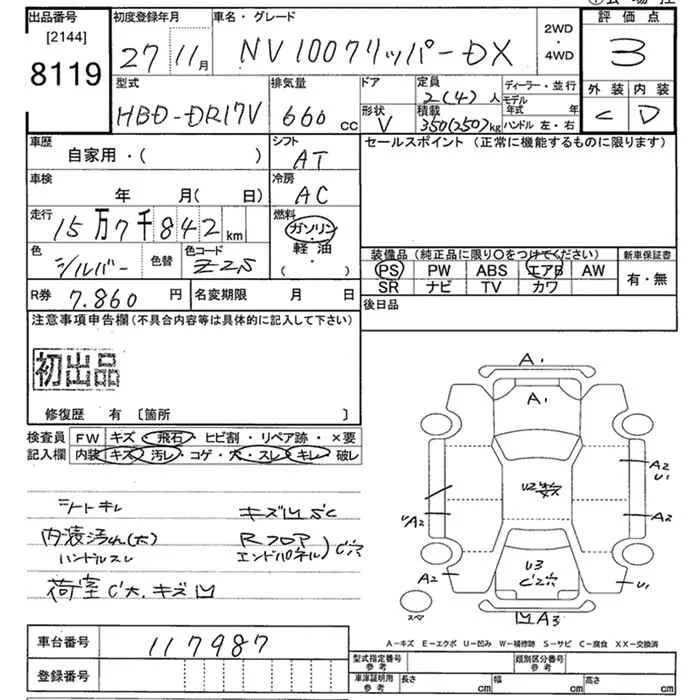 出品番号
[2144]
8119
初度登録年月
27 11月
車名・グレード
NV100クリッパーDX
2WD
・
4WD
評価点
3
外装 内装
C D
型式
HBD-DR17V
排気量
660 cc
ドア
形状
V
定員
2(4)人
積載
350(250)kg
ディーラー・並行
モデル
年式 年
ハンドル 左・右
車歴
自家用・( )
シフト
AT
セールスポイント (正常に機能するものに限ります)
車検
年 月( 日)
冷房
AC
走行
15万7千842km
燃料
ガソリン
・
軽油
( )
色
シルバー
色替
色コード
Z2S
装備品 (純正品に限り○をつけてください)
PS PW ABS エアB AW
SR ナビ TV カワ
新車保証書
有・無
R券
7.860 円
名変期限 月 日
後日品
注意事項申告欄(不具合内容等は具体的に記入して下さい)
初出品
修復歴 有 〔箇所 〕
検査員
記入欄
FW キズ・飛石・ヒビ割・リペア跡・×要
内装 キズ・汚レ・コゲ・穴・スレ・キレ・破レ
シートキレ
ハンドルスレ
Rフロア
エンドパネル
A1
A1
U2
A2
U1
A2
A2
A2
U3
U1
A3
スペア
A-キズ E-エクボ U-凹み W-補修跡 S-サビ C-腐食 XX-交換済
車台番号
117987
登録番号
型式指定番号
参考
類別区分番号
参考
車庫証明用
参考
長さ cm
幅 cm
高さ cm